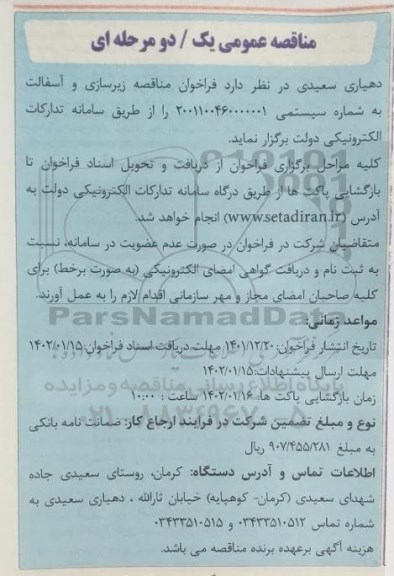 مناقصه عمومی یک / دو مرحله ای
دهیاری سعیدی در نظر دارد فراخوان مناقصه زیرسازی و آسفالت
به شماره سیستمی ۲۰۰۱۱۰۰۴۶۰۰۰۰۰۰۱ را از طریق سامانه تدارکات
الکترونیکی دولت برگزار نماید.
کلیه مراحل برگزاری فراخوان از دریافت و تحویل اسناد فراخوان تا
بازگشایی پاکت ها از طریق درگاه سامانه تدارکات الکترونیکی دولت به
آدرس (www.setadiran.ir) انجام خواهد شد.
متقاضیان شرکت در فراخوان در صورت عدم عضویت در سامانه، نسبت
به ثبت نام و دریافت گواهی امضای الکترونیکی (به صورت برخط) برای
کلیه صاحبان امضای مجاز و مهر سازمانی اقدام لازم را به عمل آورند.
ParsNamadData
مواعد زمانی:
تاریخ انتشار فراخوان: ۱۴۰۱/۱۲/۲۰ مهلت دریافت اسناد فراخوان: ۱۴۰۲/۰۱/۱۵
مهلت ارسال پیشنهادات: ۱۴۰۲/۰۱/۱۵
پایگاه اطلاع رسانی مناقصه و مزایده
زمان بازگشایی پاکت ها: ۱۴۰۲/۰۱/۱۶ ساعت : ۱۰:۰۰
۰۲۱-۸۸۳۴۹۶۷۰-۵
نوع و مبلغ تضمین شرکت در فرایند ارجاع کار: ضمانت نامه بانکی
به مبلغ ۹۰۷/۴۵۵/۲۸۱ ریال
اطلاعات تماس و آدرس دستگاه: کرمان، روستای سعیدی جاده
شهدای سعیدی (کرمان- کوهپایه) خیابان ثارالله ، دهیاری سعیدی به
شماره تماس ۰۳۴۳۳۵۱۰۵۱۲ و ۰۳۴۳۳۵۱۰۵۱۵
هزینه آگهی برعهده برنده مناقصه می باشد.